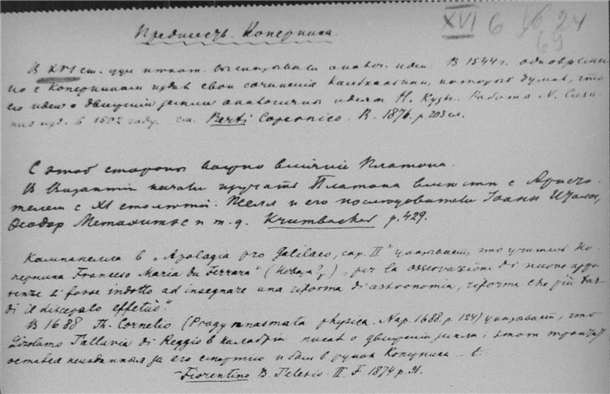 Предшеств. Коперника.
XVI 6 24
63
В XVI ст. были высказываны аналог. идеи. В 1544 г. одновремен
но с Коперником издав свои сочинения Кальканьини, который думал, что
его идеи о движении земли аналогичны идеям Н. Кузы. Работа N.
изд. в 1502 году. см. Berti Copernico. R. 1876. p 203
С этой стороны важно влияние Платона.
В Византии начали изучать Платона вместе с Аристо
телем с XI столетия. Пселл и его последователи Иоанн Итал,
Феодор Метохитис и т. д. Krumbacher p. 429.
Кампанелла в "Apologia pro Galilaeo, cap. II" указывает, что учитель Ко
перника Francesco Maria da Ferrara" (Новара?) "per la osservazioni di nuove appa
renze si fosse indotto ad insegnare una riforma di astronomia, riforma che più tar
di il discepolo effettuò".
В 1688 Th. Cornelio (Progymnasmata physica. Nap. 1688. p. 124) указывает, что
Girolamo Tallavia di Reggio в Калабрии писал о движении земли, этот трактат
остался неизданным за его смертью и был в руках Коперника
Fiorentino B. Telesio. II. F. 1874 p 31.